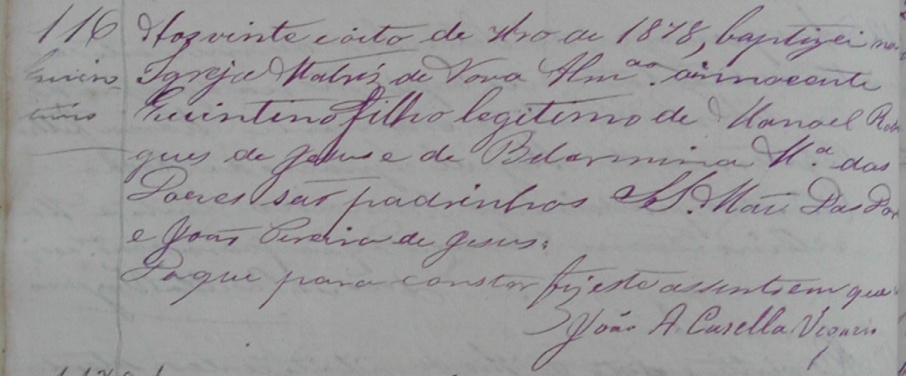 116 Aos vinte e oito de 9bro de 1878, baptizei na
Quin- Igreja Matriz de Nova Alm.da o innocente
tino Quintino filho legitimo de Manoel Rodri
gues de Jesus e de Belarmina M.a das
Dores são padrinhos Mãi Das Dor
e João Pereira de Jesus.
Do que para constar fiz este assento em que
João A. Casella Vigario